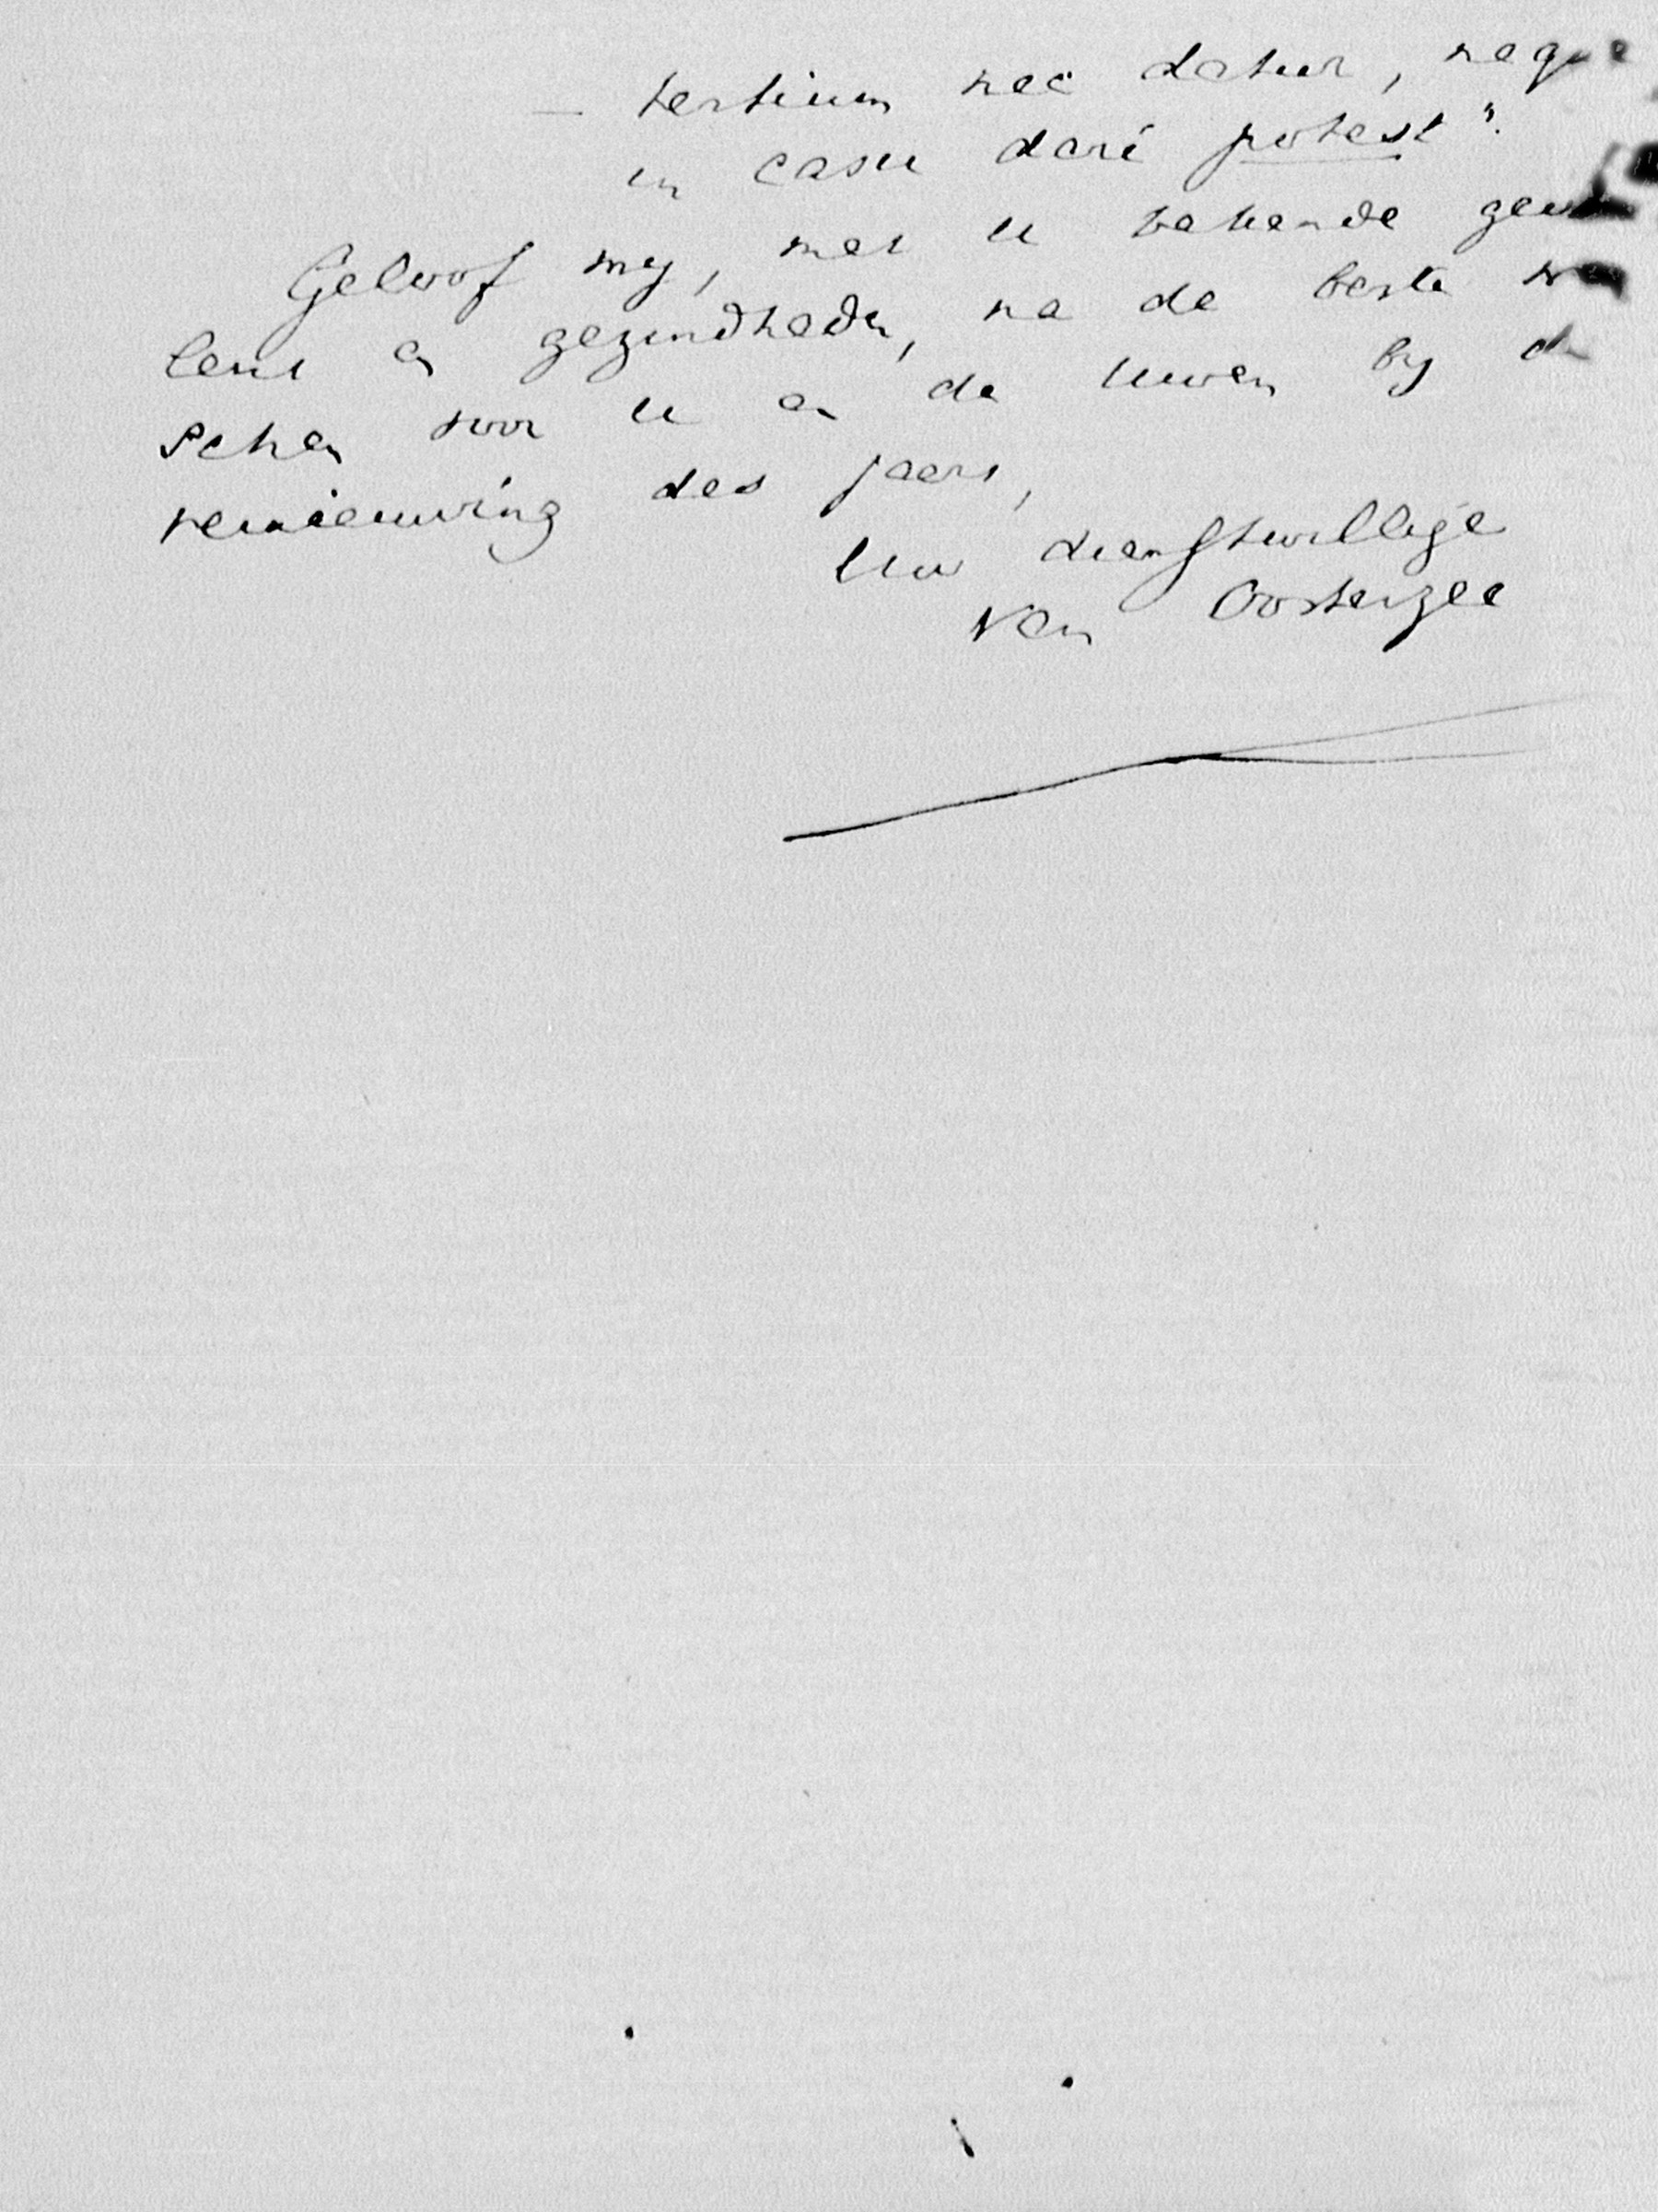 — tertium nec datur, neque
in casu dari potest".
Geloof my, met u bekende gevoe
lens en gezindheden, na de beste wen
schen voor u en de uwen by de
vernieuwing des jaars,
Uw dienstwillige
Van Oosterzee